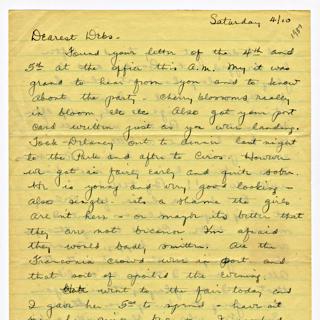 Saturday 4/10
Dearest Debs-
Found your letter of the 4th and
5th at the office this A.M. My it was
grand to hear from you and to know
about the party - cherry blossoms really
in bloom, etc etc. Also got your post
card written just as you were landing.
Took Delaney out to dinner last night
to the Park and after to Ciros. However
we got in fairly early and quite sober.
He is young and very good looking -
also single. Its a shame the girls
arent here - or maybe its better that
they are not because I'm afraid
they would badly smitten. All the
Franconia crowd were in port and
that sort of spoiled the evening.
went to the fair today and
I gave her 5.00 to spend - have at